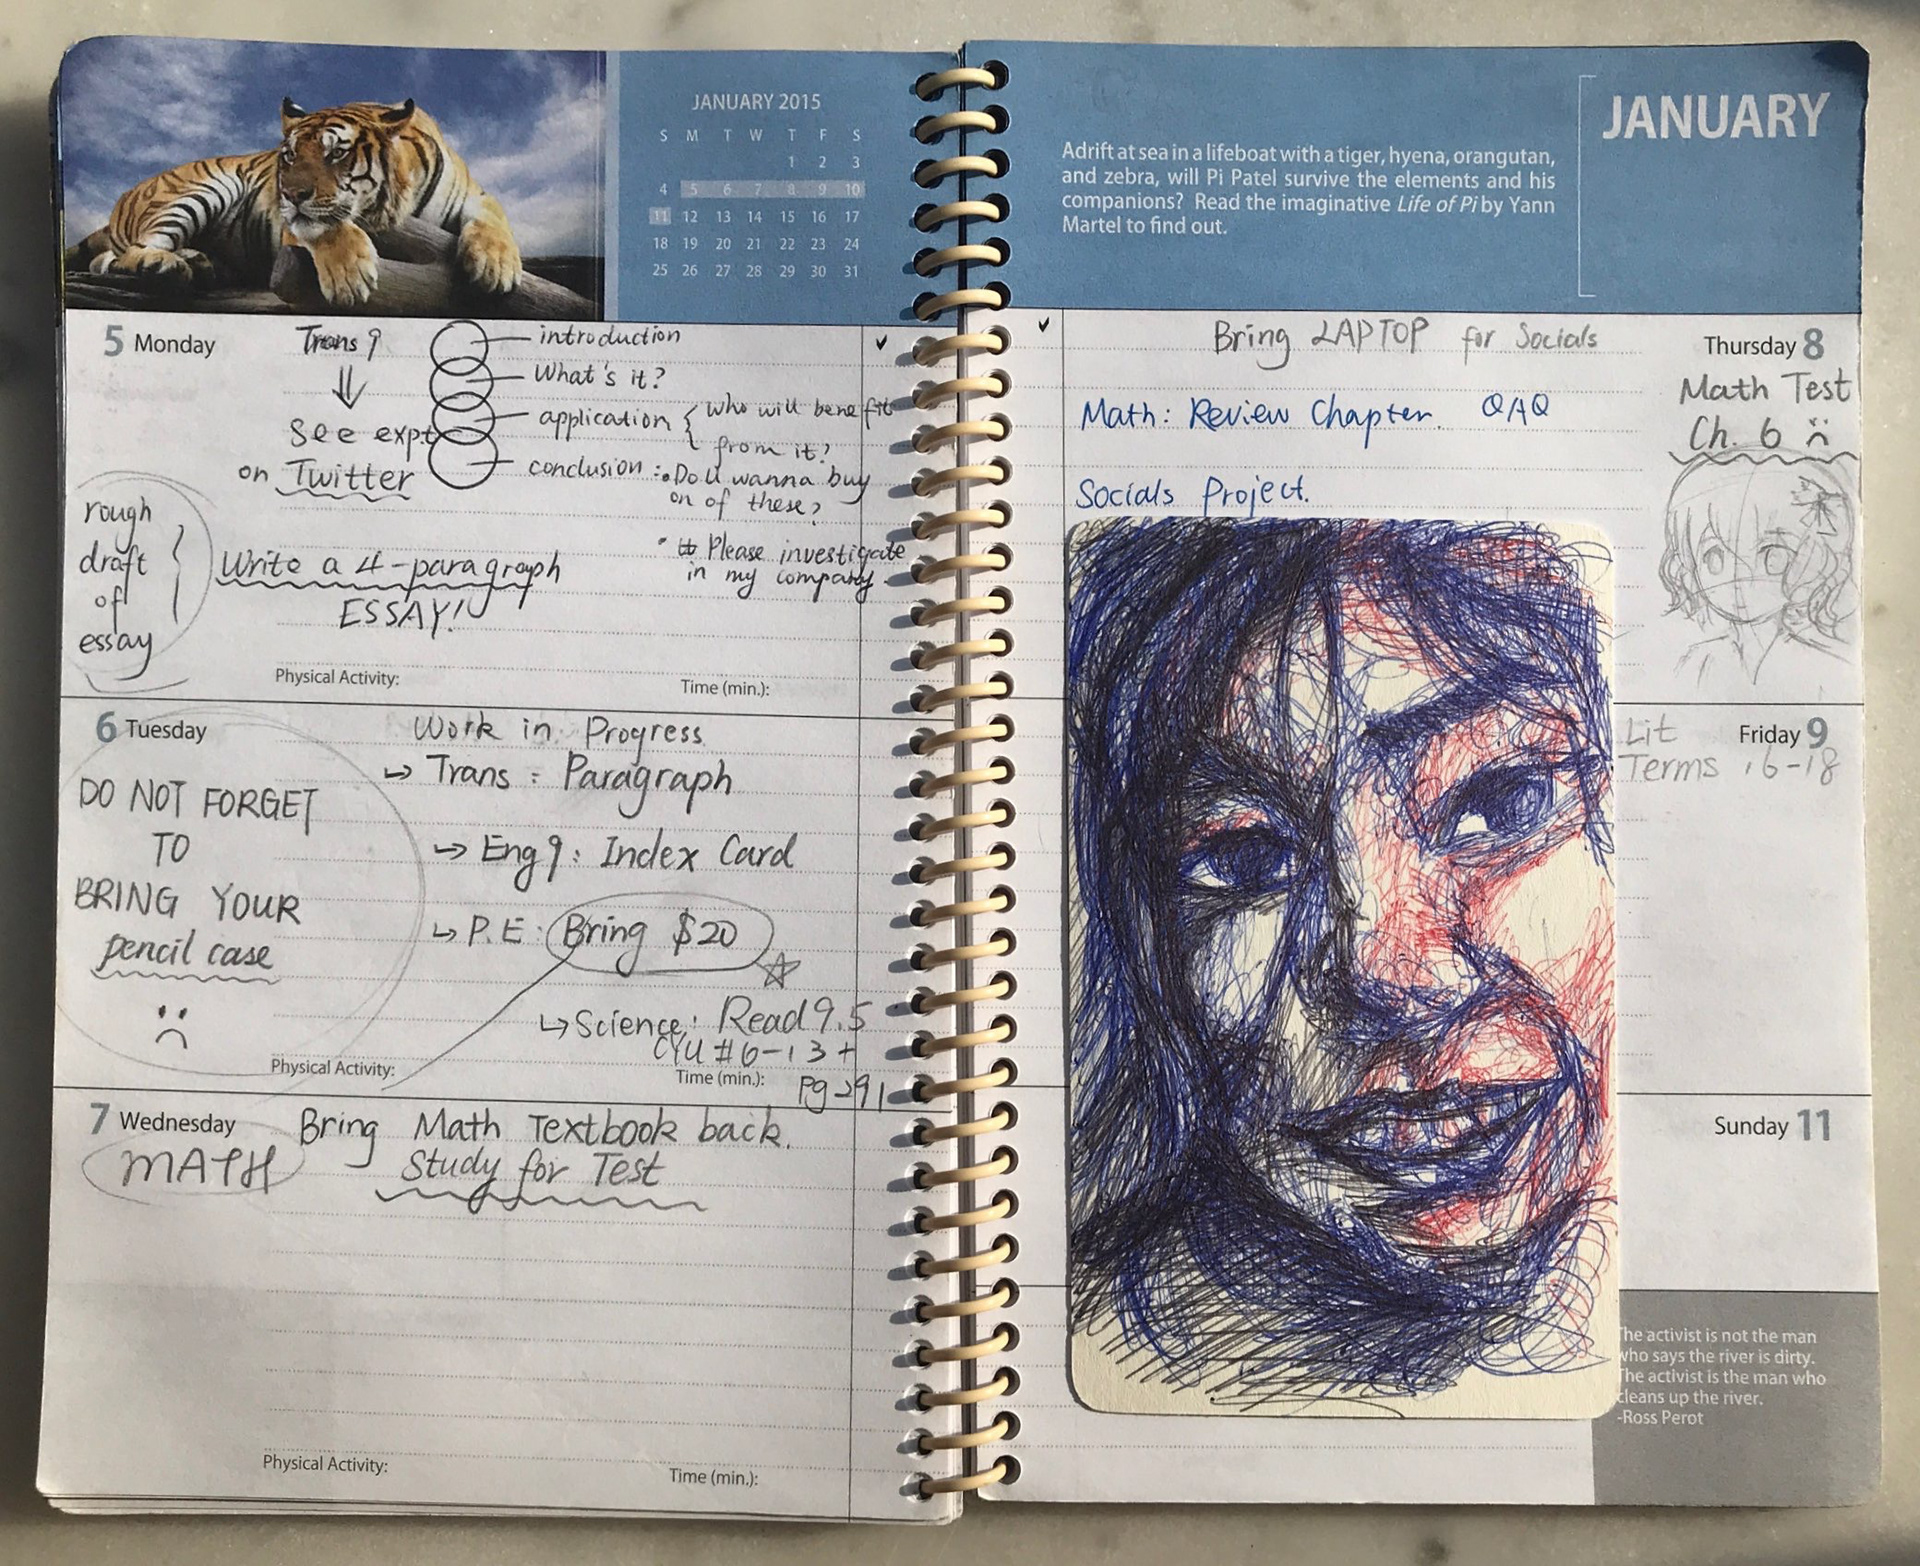 JANUARY 2015
S M T W T F S
1 2 3
4 5 6 7 8 9 10
11 12 13 14 15 16 17
18 19 20 21 22 23 24
25 26 27 28 29 30 31
5 Monday
Trans 9
see expt
on Twitter
introduction
What's it?
application { who will benefit
from it?
conclusion : • Do u wanna buy
on of these?
• Please investigate
in my company.
rough
draft
of
essay
Write a 4-paragraph
ESSAY!
Physical Activity:
Time (min.):
6 Tuesday
DO NOT FORGET
TO
BRING YOUR
pencil case
Work in Progress
↳ Trans : Paragraph
↳ Eng 9: Index Card
↳ P.E : Bring $20
↳ Science: Read 9.5
CYU #6-13 +
Pg 291
Physical Activity:
Time (min.):
7 Wednesday
MATH
Bring Math Textbook back.
Study for Test
Physical Activity:
Time (min.):
JANUARY
Adrift at sea in a lifeboat with a tiger, hyena, orangutan,
and zebra, will Pi Patel survive the elements and his
companions? Read the imaginative Life of Pi by Yann
Martel to find out.
Bring LAPTOP for Socials
Thursday 8
Math Test
Ch. 6
Math: Review Chapter. QAQ
Socials Project.
Friday 9
Lit
Terms 16-18
Sunday 11
The activist is not the man
who says the river is dirty.
The activist is the man who
cleans up the river.
-Ross Perot